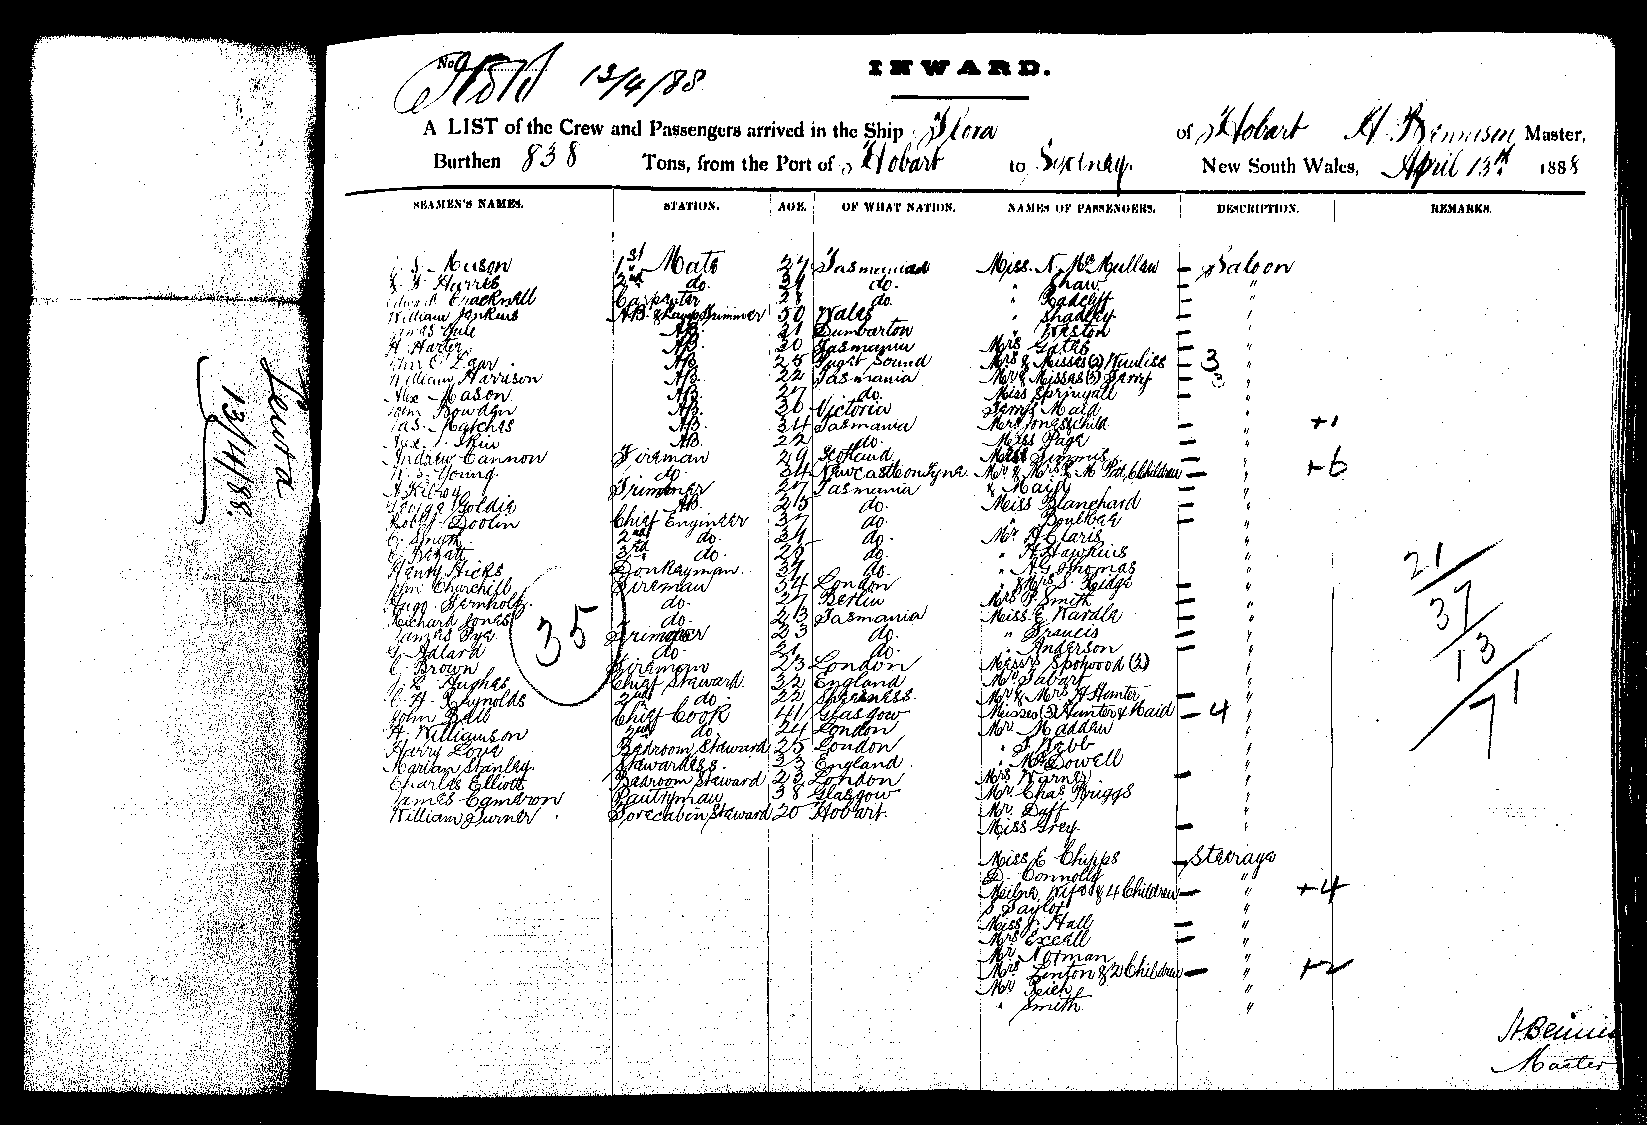 No.
13/4/88
INWARD.
A LIST of the Crew and Passengers arrived in the Ship Flora of Hobart H. Bennison Master,
Burthen 838 Tons, from the Port of Hobart to Sydney New South Wales, April 13th 1888
SEAMEN'S NAMES. STATION. AGE. OF WHAT NATION. NAMES OF PASSENGERS. DESCRIPTION. REMARKS.
Mason 1st Mate 27 Tasmania Miss N. McMullan - Saloon
Harris 2nd do. do. " Shaw - "
Cracknell Carpenter 28 do. " Radcliff - "
William Jenkins AB & Lamp Trimmer 50 Wales " Bradley - "
James Yule AB 21 Dumbarton " Weston - "
H. Harter AB 30 Tasmania Mrs Gates - "
AB 28 Sound Mrs & Misses (2) - 3 "
William Harrison AB 22 Tasmania Mr & Misses (3) - 3 "
Alex Mason AB 27 do. Miss Springall - "
John Bowden AB 36 Victoria Maid - "
Jas. AB 34 Tasmania Mrs Jones & child - " +1
AB 22 do. Miss Page - "
Andrew Cannon Fireman 29 Scotland Simms - "
Young do. 34 Newcastle on Tyne Mr & Mrs Children - " +6
Trimmer 27 Tasmania & Maid - "
Goldie AB 25 do. Miss Blanchard - "
Robert Doolin Chief Engineer 37 do. " - "
C. Smith 2nd do. 34 do. Mr H. Claris "
3rd do. 29 do. " H. Hawkins "
Henry Hicks Donkeyman 37 do. " A G Thomas "
Churchill Fireman 34 London " Mrs S. - "
do. 27 Berlin Mrs P. Smith - "
Richard Jones do. 23 Tasmania Miss E. Wardle - "
James Pye Trimmer 23 do. " Francis - "
G Adlard do. 21 do. " Anderson - "
C. Brown Fireman 23 London Messrs Spotwood (2) "
Hughes Chief Steward 32 England Mr Tabart "
C. H. Reynolds 2nd do. 22 Sheerness Mr & Mrs H Hunter - "
John Ball Chief Cook 41 Glasgow Misses (3) Hunter & Maid - 4 "
H. Williamson 2nd do. 24 London Mr. Madden "
Harry Love Bedroom Steward 25 London " Webb "
Marian Stanley Stewardess 33 England " McDowell "
Charles Elliott Bedroom Steward 23 London Mrs Warner - "
James Cameron Pantryman 38 Glasgow Mr Chas Briggs "
William Turner Forecabin Steward 20 Hobart Mr. Duff "
Miss Grey - "
35
Miss E Chipps - Steerage
D. Connolly "
Milne, Wife & 4 Children - " +4
S Taylor "
Miss J. Hall - "
Mrs Excell - "
Mr Norman "
Mrs Linton & 2 Children - " +2
Mr Reich "
" Smith "
21
37
13
71
H Benni
Master
13/4/88.